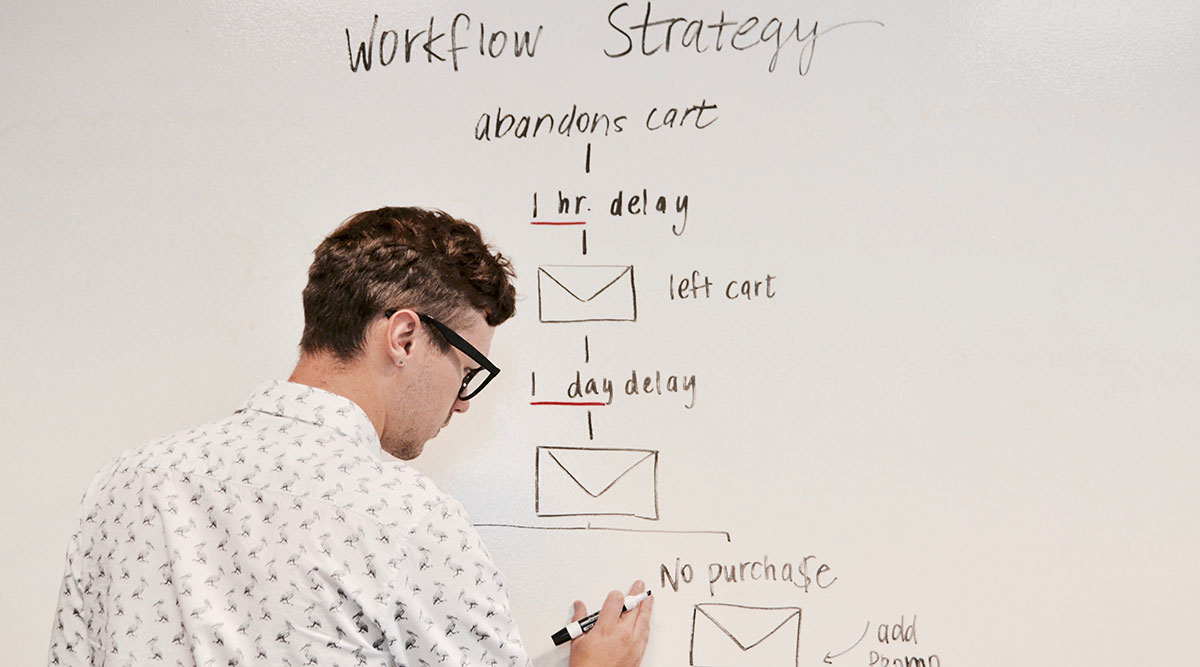 Workflow Strategy
abandons cart
1 hr. delay
left cart
1 day delay
No purcha$e
add
promo